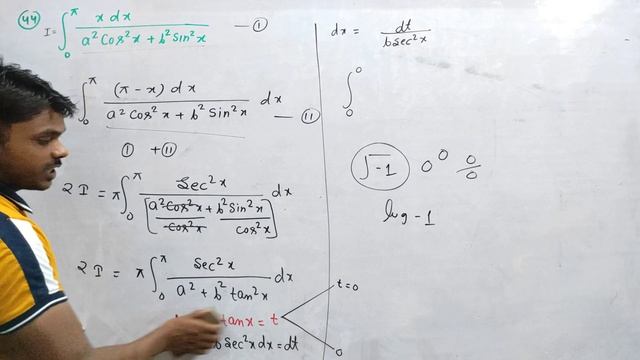 44
I = ∫₀^π x dx / (a² Cos² x + b² Sin² x) — ①
∫₀^π (π - x) dx / (a² Cos² x + b² Sin² x) dx — ⑪
① + ⑪
2 I = π ∫₀^π Sec² x / [a² Cos² x / Cos² x + b² Sin² x / cos² x] dx
2 I = π ∫₀^π Sec² x / (a² + b² tan² x) dx
tan x = t
t = 0
0
Sec² x dx = dt
dx = dt / b Sec² x
∫₀^0
√-1 0⁰ 0/0
log -1